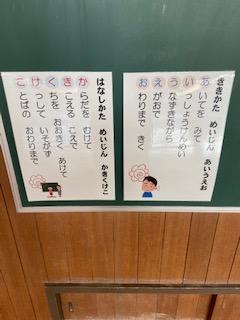 ききかた めいじん あいうえお
あいてを みて
いっしょうけんめい
うなずきながら
えがおで
おわりまで きく
はなしかた めいじん かきくけこ
からだを むけて
きこえる こえで
くちを おおきく あけて
けっして いそがず
ことばの おわりまで